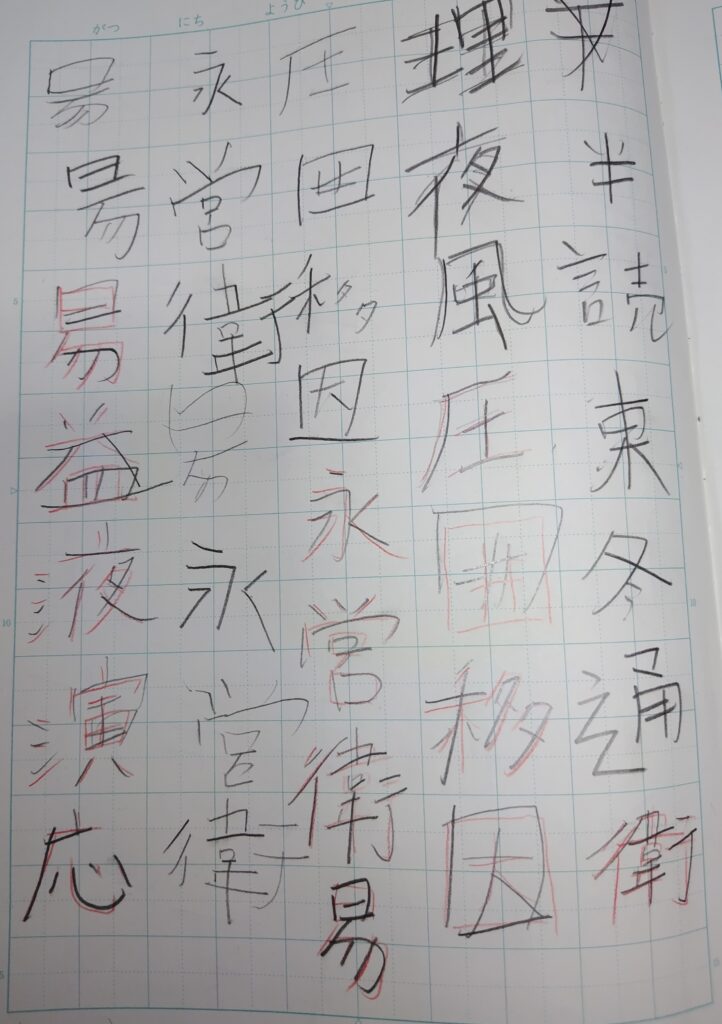 がつ にち ようび
半読東冬通衛
理夜風圧囲移因
圧囲移因永営衛易
永営衛易永営衛
易易易益液演応